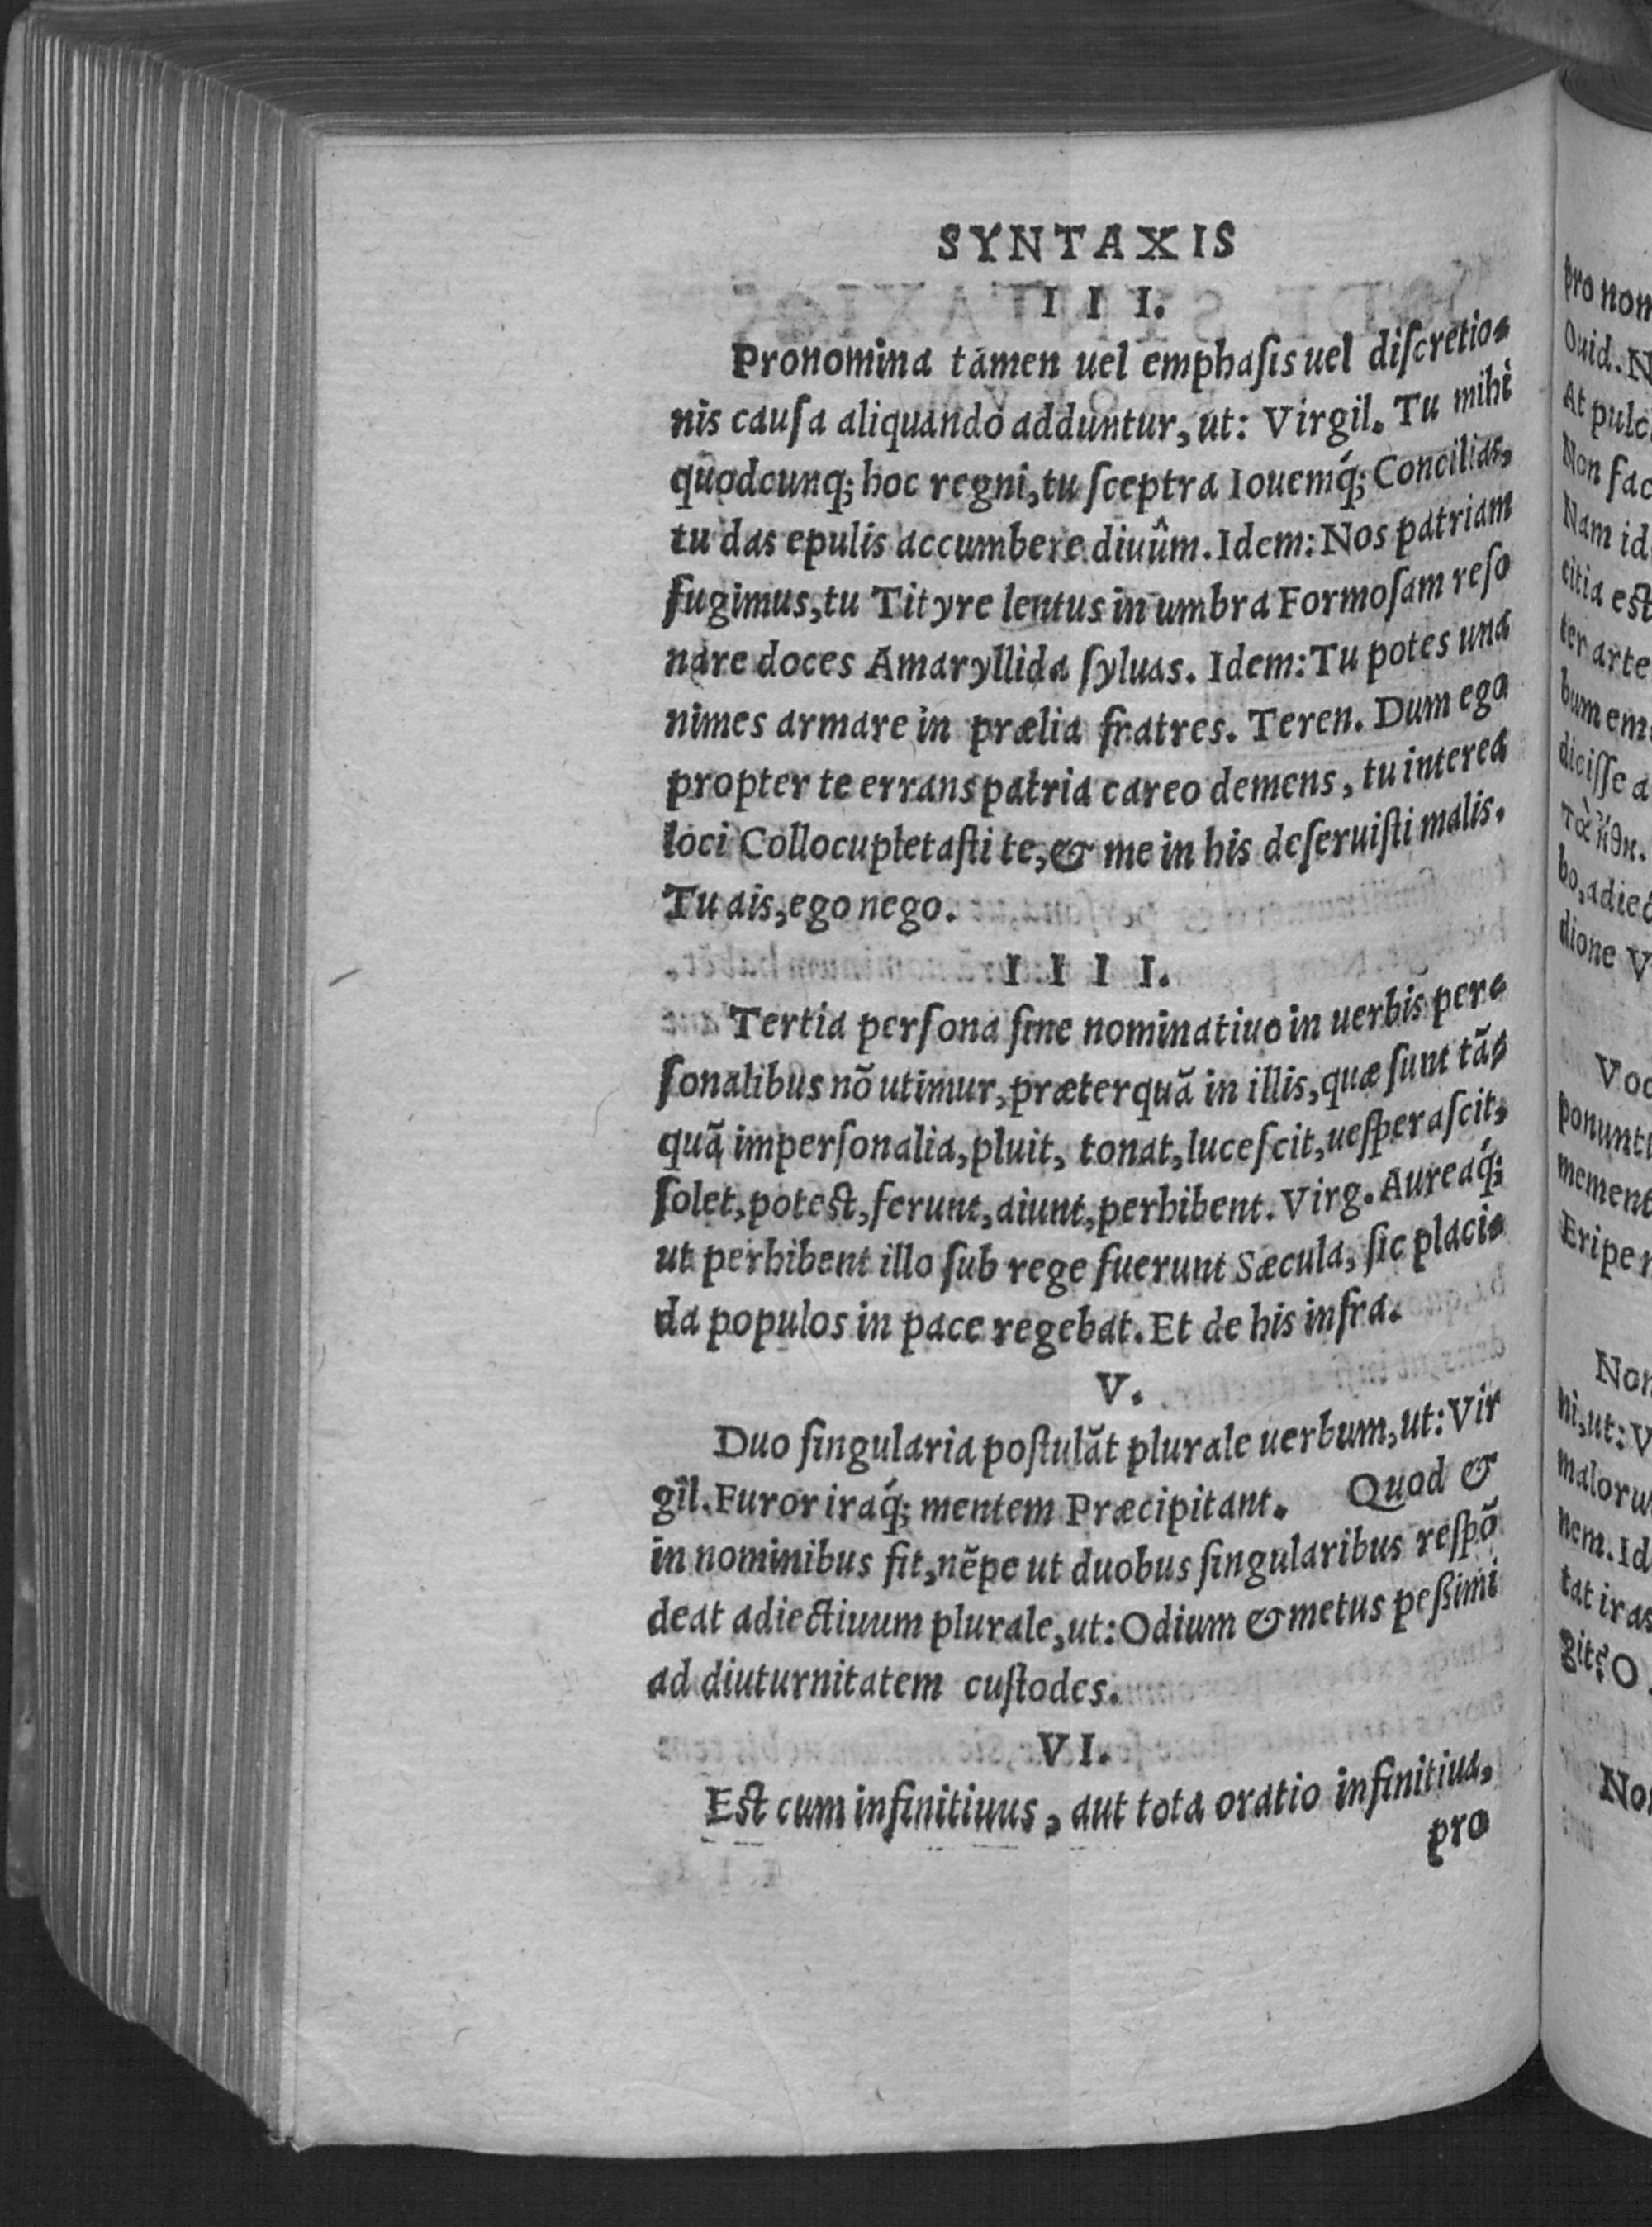 SYNTAXIS
I I I.
Pronomina tamen uel emphaſis uel diſcretio-
nis cauſa aliquando adduntur, ut: Virgil. Tu mihi
quodcunq; hoc regni, tu ſceptra Iouemq́; Concilias,
tu das epulis accumbere diuûm. Idem: Nos patriam
fugimus, tu Tityre lentus in umbra Formoſam reſo
nare doces Amaryllida ſyluas. Idem: Tu potes una
nimes armare in prælia fratres. Teren. Dum ego
propter te errans patria careo demens, tu interea
loci Collocupletaſti te, & me in his deſeruiſti malis.
Tu ais, ego nego.
I I I I.
Tertia perſona ſine nominatiuo in uerbis per-
ſonalibus nō utimur, præterquā in illis, quæ ſunt tā-
quā imperſonalia, pluit, tonat, luceſcit, ueſperaſcit,
ſolet, poteſt, ferunt, aiunt, perhibent. Virg. Aureaq́;
ut perhibent illo ſub rege fuerunt Sæcula, ſic placi-
da populos in pace regebat. Et de his infra.
V.
Duo ſingularia poſtulāt plurale uerbum, ut: Vir
gil. Furor iraq́; mentem Præcipitant. Quod &
in nominibus fit, nēpe ut duobus ſingularibus reſpō
deat adiectiuum plurale, ut: Odium & metus peßimi
ad diuturnitatem cuſtodes.
VI.
Eſt cum infinitiuus, aut tota oratio infinitiua,
pro
pro non
Ouid. N
At pulc
Non fac
Nam id
citia eſt
ter arte
bum em
diciſſe a
bo, adiec
dione V
Voc
ponunt
mement
Eripe
Non
ni, ut: V
malorum
nem. Id
tat iras
git? O
No